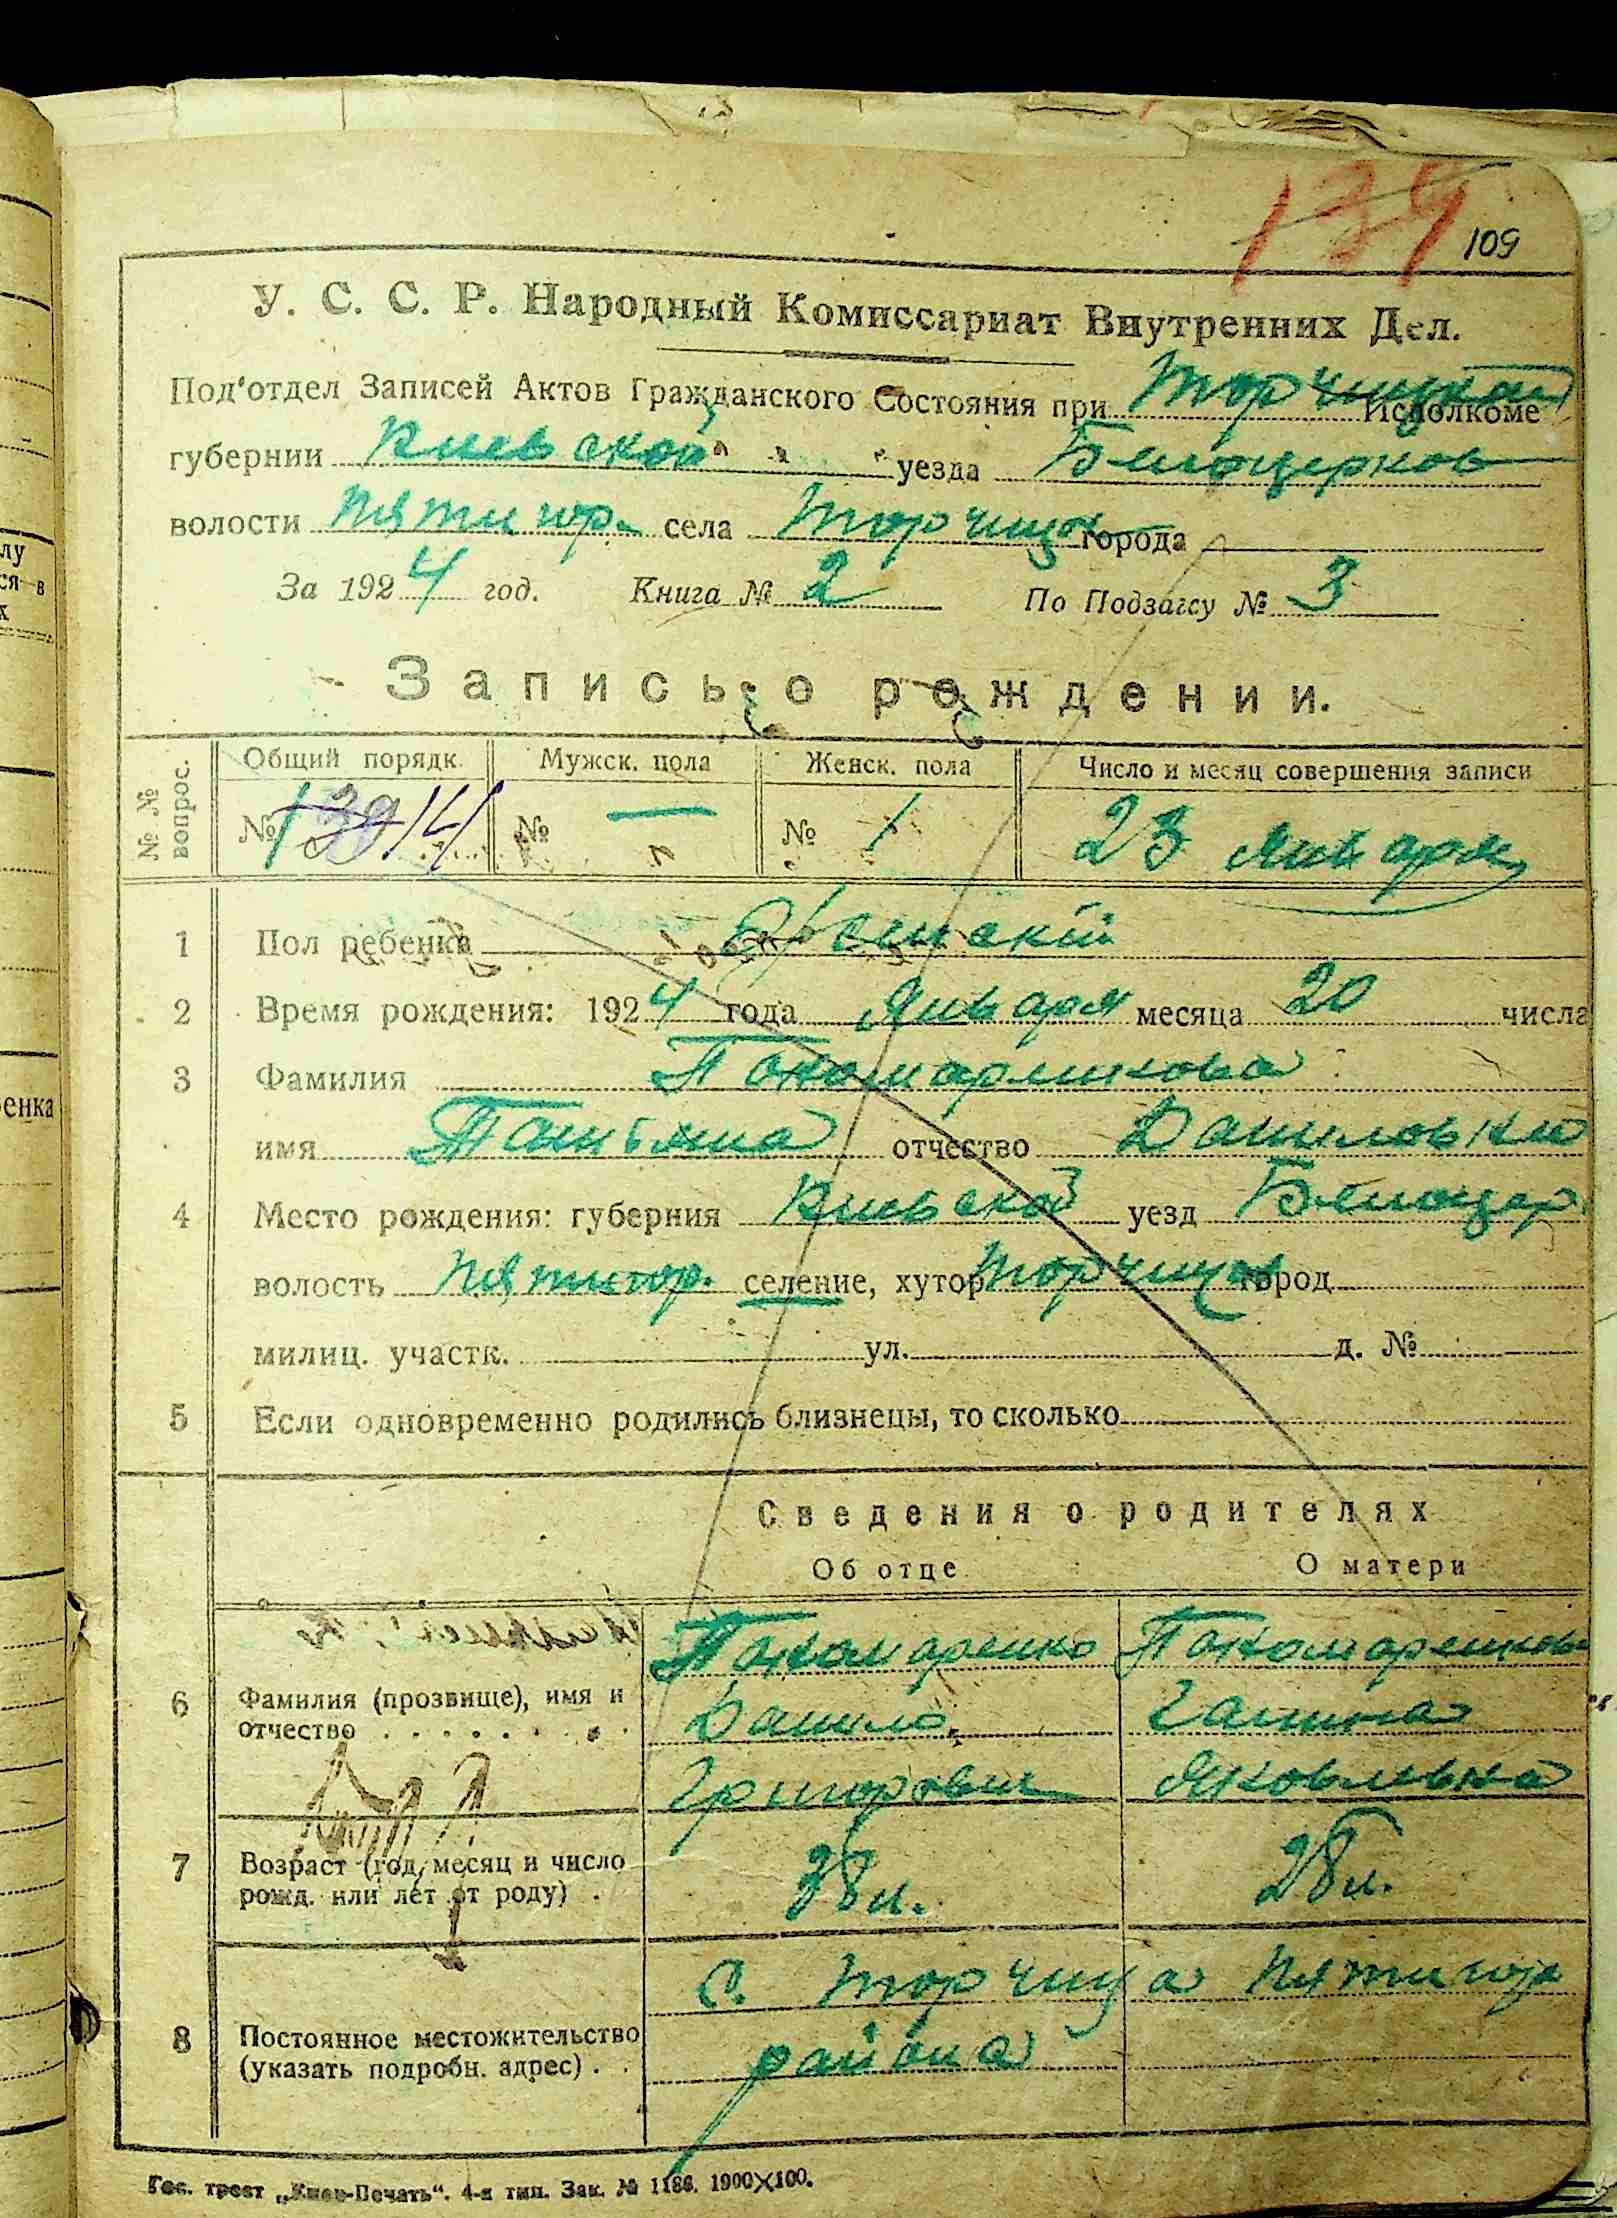 134
109
У. С. С. Р. Народный Комиссариат Внутренних Дел.
Под'отдел Записей Актов Гражданского Состояния при Торчицком Исполкоме
губернии Киевской уезда Белоцерков
волости Пятигор. села Торчица города
За 1924 год. Книга № 2 По Подзагсу № 3
Запись о рождении.
№ № вопрос. Общий порядк. Мужск. пола Женск. пола Число и месяц совершения записи
№ 1 № — № 1 23 января
1 Пол ребенка Женский
2 Время рождения: 1924 года Января месяца 20 числа
3 Фамилия Пономаренкова
имя Татьяна отчество Даниловна
4 Место рождения: губерния Киевской уезд Белоцер
волость Пятигор. селение, хутор Торчица город
милиц. участк. ул. д. №
5 Если одновременно родились близнецы, то сколько
Сведения о родителях
Об отце О матери
Пономаренко Пономаренкова
6 Фамилия (прозвище), имя и Данило Ганна
отчество
Григорович Яковлевна
7 Возраст (год, месяц и число 38 л. 28 л.
рожд. или лет от роду)
С. Торчица Пятигор
8 Постоянное местожительство района
(указать подробн. адрес)
Гос. трест „Киев-Печать“. 4-я тип. Зак. № 1186. 1900×100.
лу
ся в
х
енка